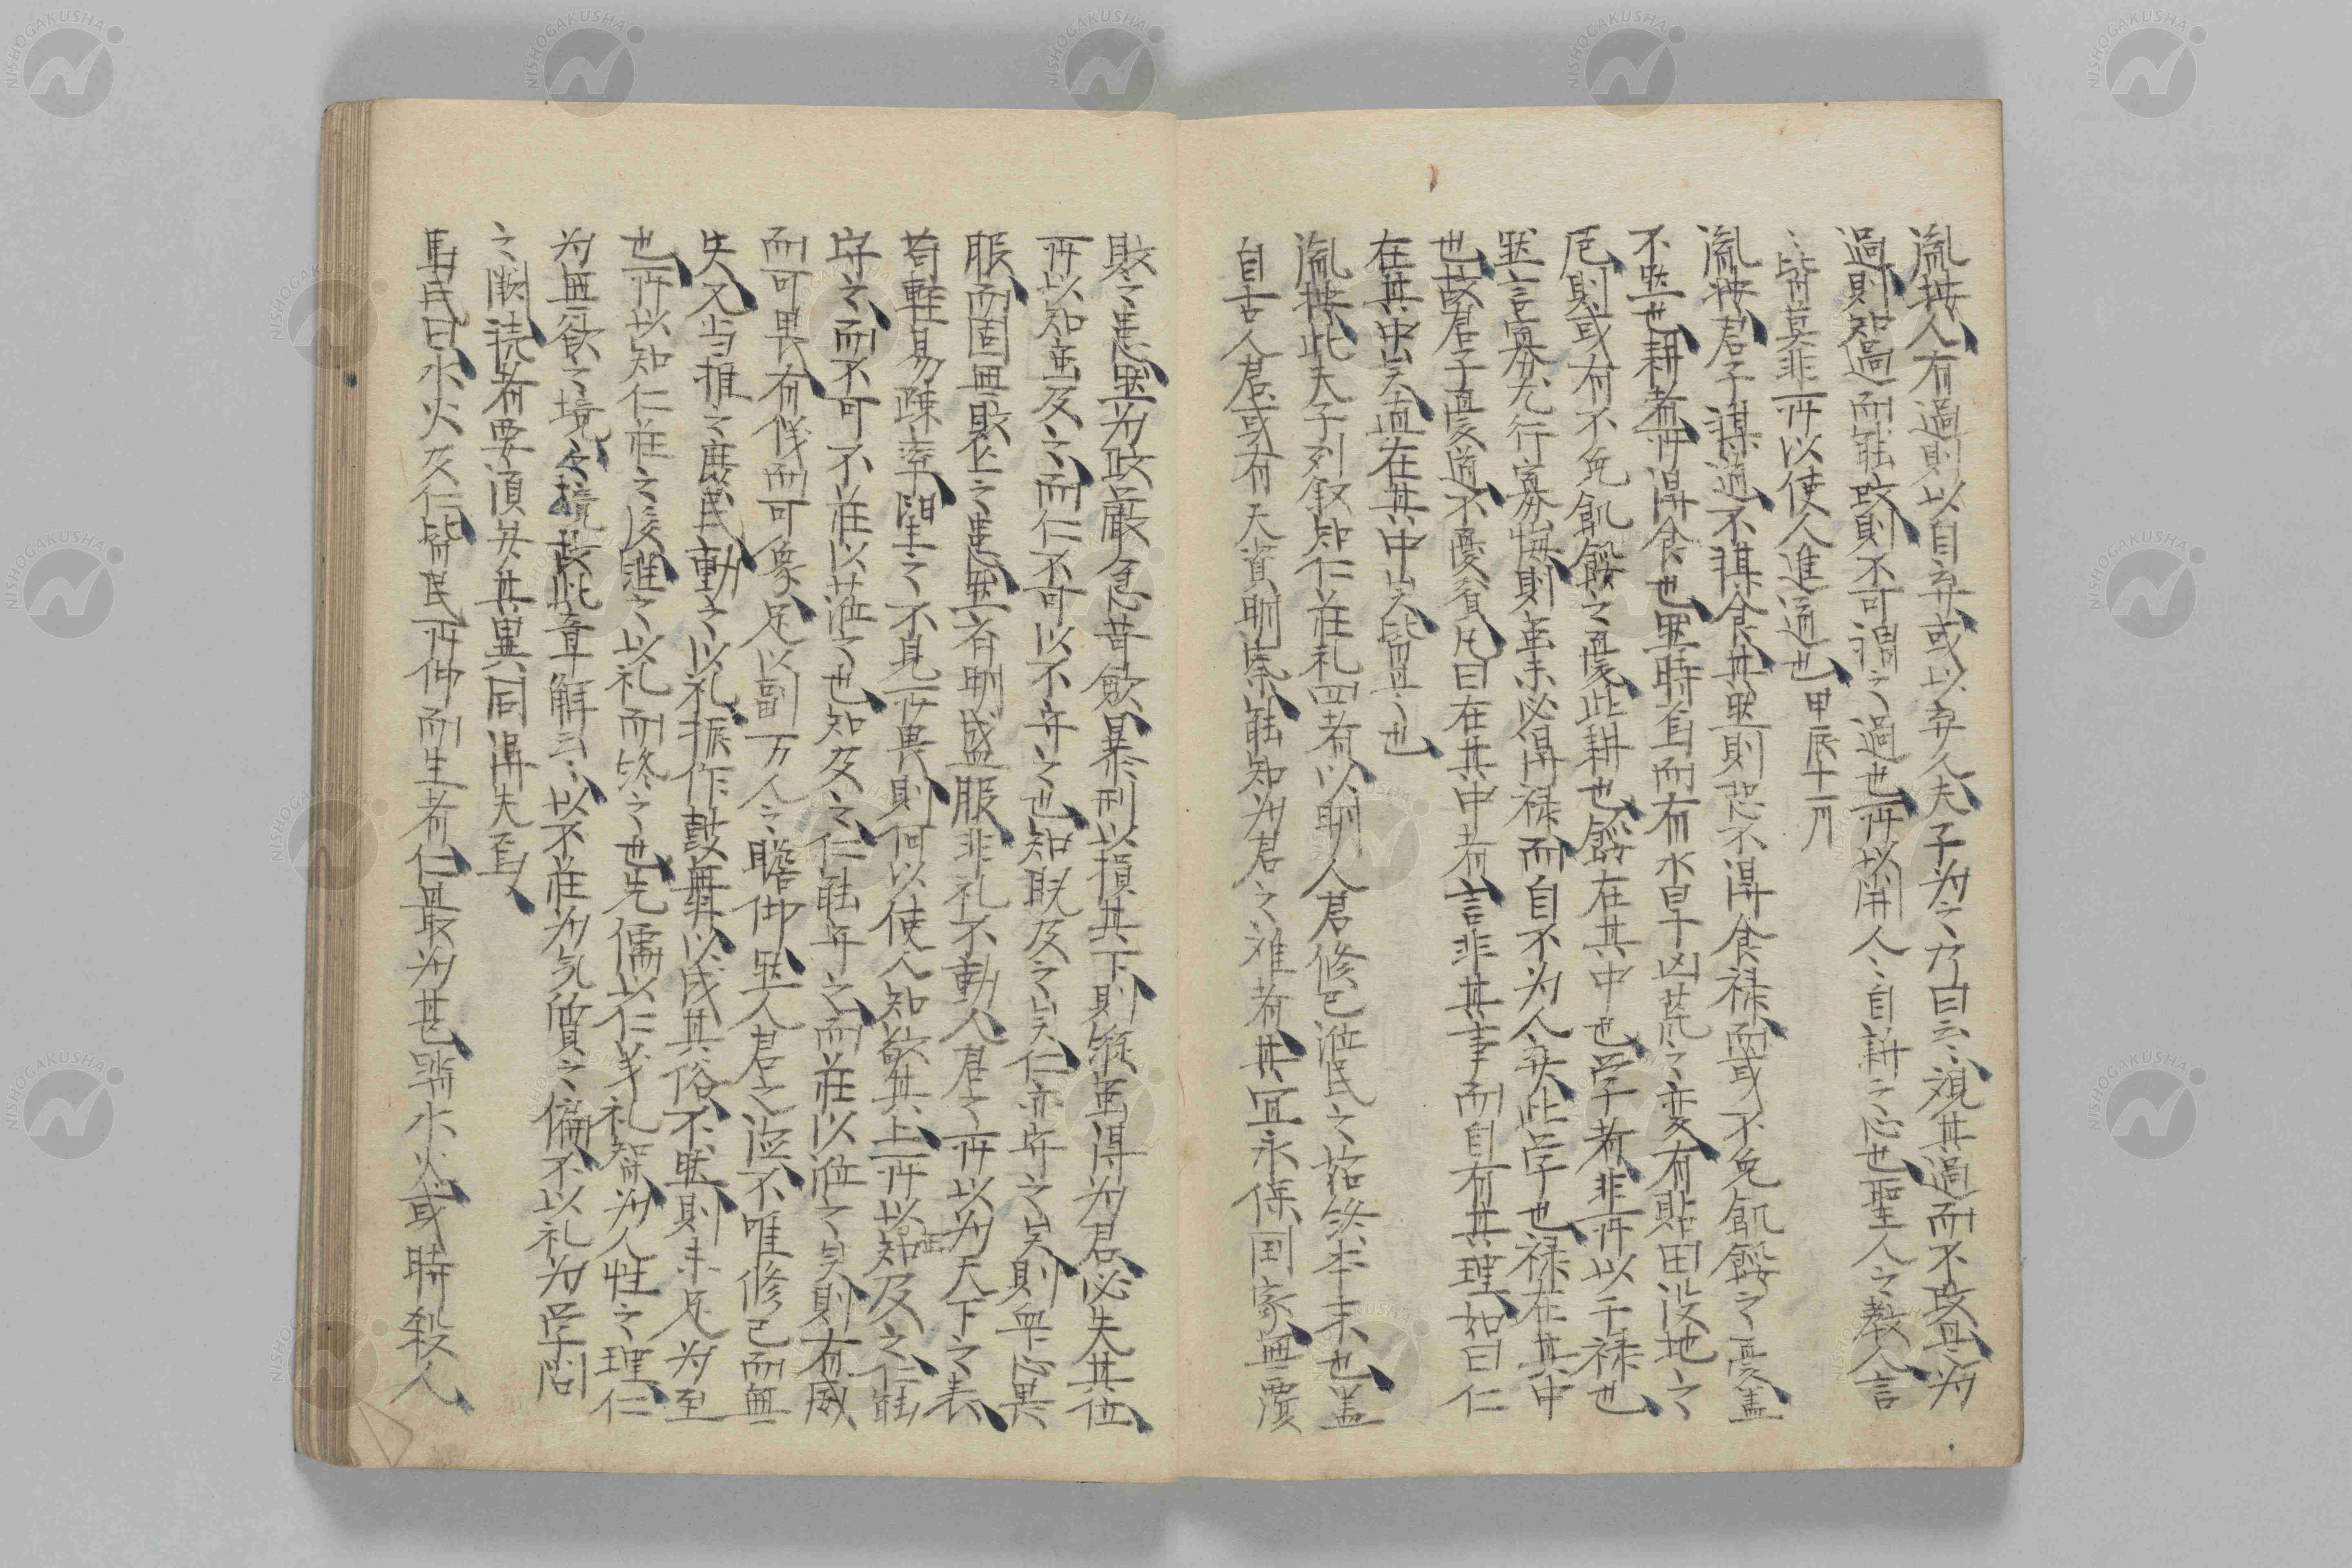 胤按人有過則以自弃或以弃人夫子为之乃曰云〻視其過而不改毋为
過則知過而能改則不可謂之過也所以開人〻自耕之心也聖人之教人言
〻皆莫非所以使人進道也 甲辰十一月
胤按君子謀道不謀食其然則恐不得食禄而或不免飢餒之憂盖
不然也耕者所得食也然時有而有水旱凶荒之変有貼田没地之
厄則或有不免飢餒之憂此耕也餒在其中也学者非所以干禄也
然言寡尤行寡悔則虽未必得禄而自不为人弃此学也禄在其中
也故君子憂道不憂貧凡曰在其中者言非其事而自有其理如曰仁
在其中矣直在其中矣皆是也
胤按此夫子列叙知仁荘礼四者以明人君修己涖民之始終本末也盖
自古人君或有天資明慮能知为君之难者其宜永保国家無覆
敗之患然为政厳急昔飲暴刑以損其下則縦虽得为君必失其位
所以知虽及之而仁不可以不守之也知既及之矣仁亦守之矣則無恐異
服而国無敗亡之患然若明盛服非礼不動人君之所以为天下之表
苟軽易疎率望之不見所畏則何以使人知敬其上所以知及之仁能
守之而不可不荘以涖之也知及之仁能守之而荘以涖之矣則有威
而可畏有儀而可象足以副万人之瞻仰然人君之涖不唯修己而無
失又当推之庶民動之以礼振作鼓舞以成其俗不然則未足为至
也所以知仁荘之後進之以礼而終之也先儒以仁義礼智为人性之理仁
为無欲之境〻故此章解云〻以不荘为気質之偏不以礼为学問
之闕読者要須弁其異同得失焉
馬氏曰水火及仁皆民所仰而生者仁最为甚蹈水火或時殺人